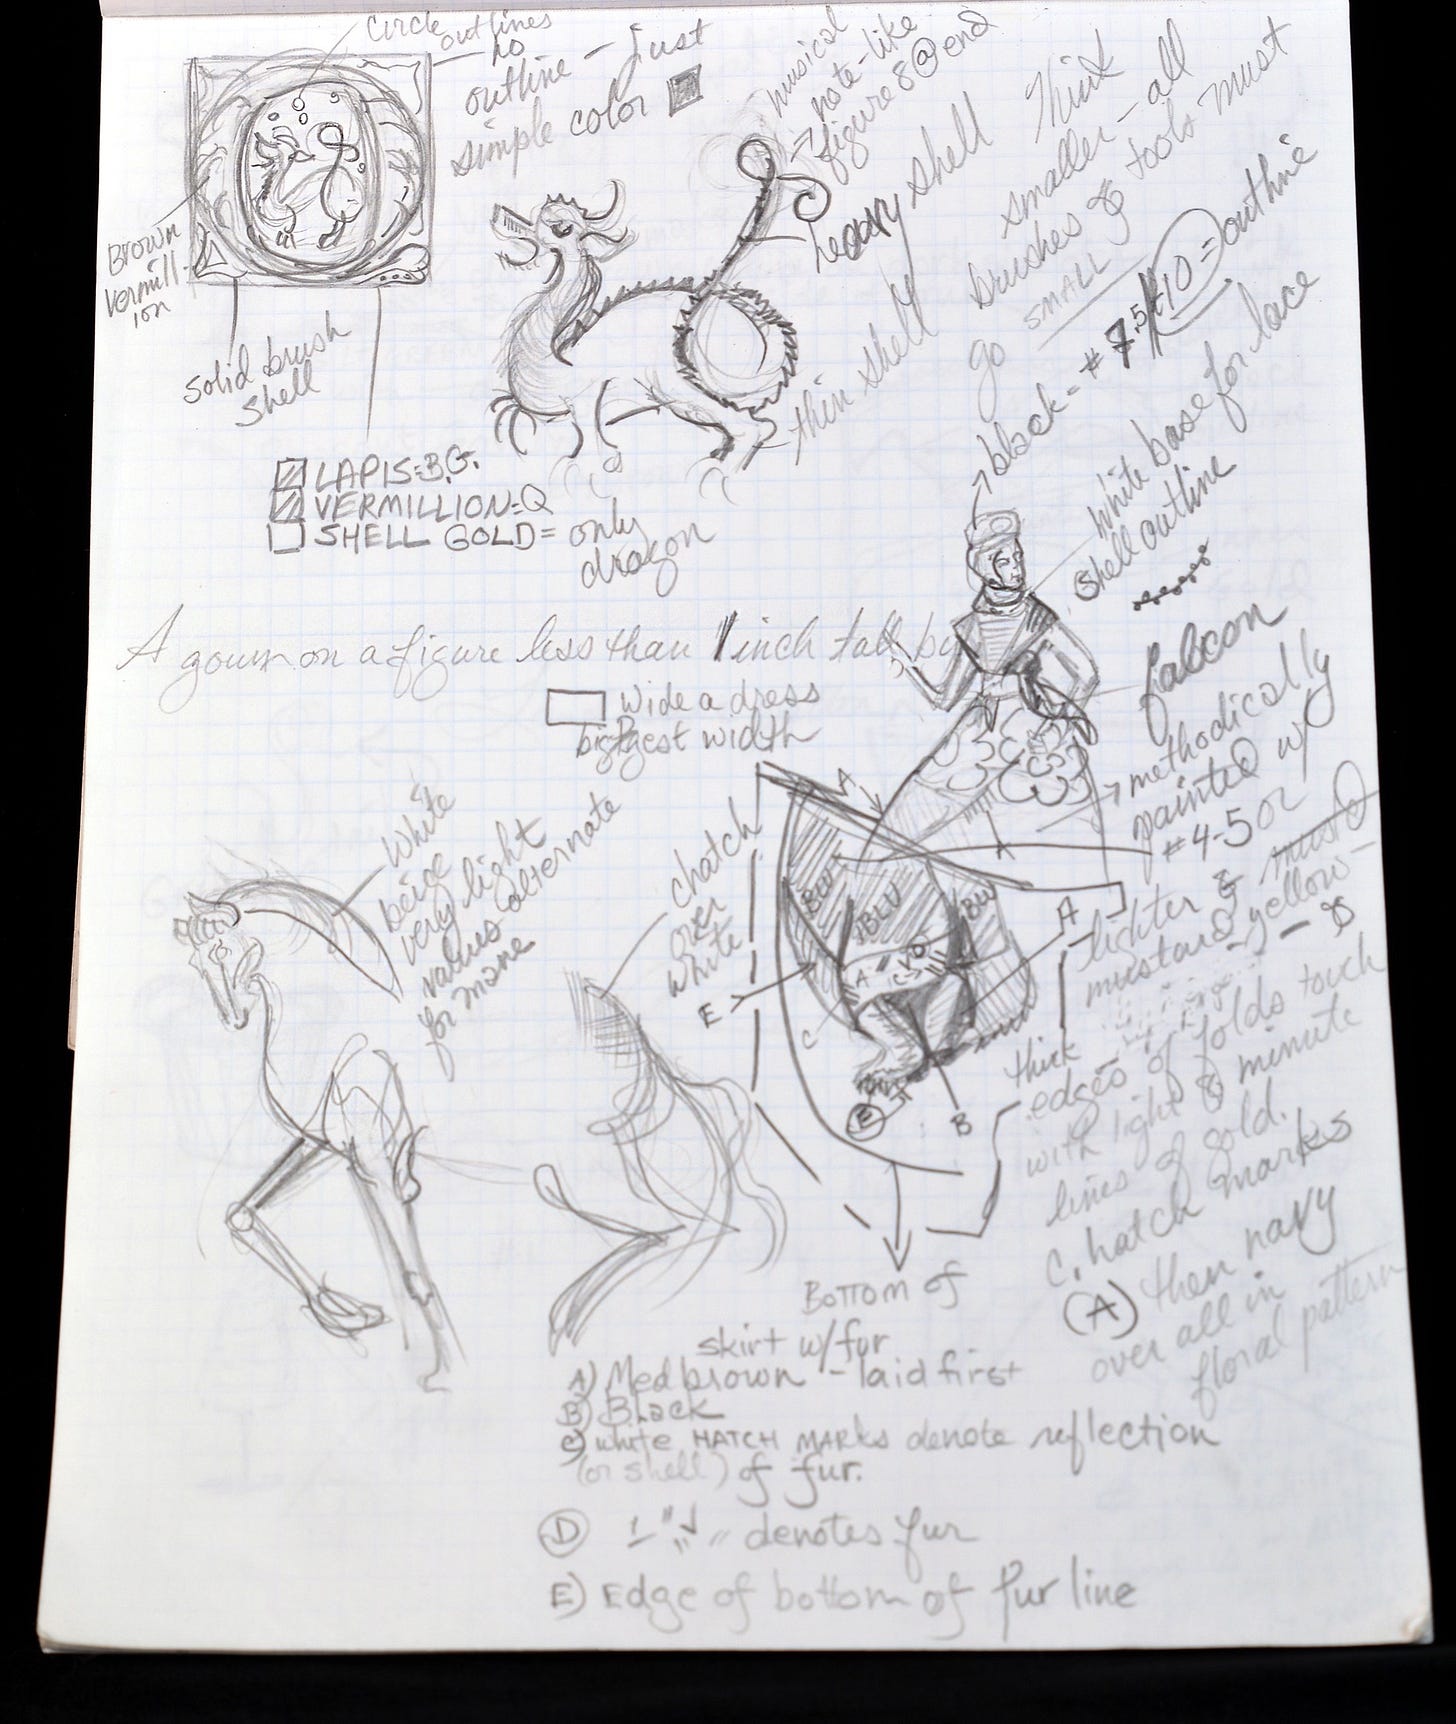 Circle outlines
no
outline - just
simple color
Brown
Vermill-
ion
Solid brush
shell
musical
note-like
figure 8 @ end
heavy shell
thin shell
Think
smaller - all
brushes & tools must
go SMALL
black = # 7.5/10 = outline
white base for lace
shell outline
LAPIS=B.G.
VERMILLION=Q
SHELL GOLD= only
dragon
A gown on a figure less than 1 inch tall by
wide a dress
biggest width
falcon
methodically
painted w/
#4-5 or
lighter &
mustard yellow -
thick
edges of folds touch
with light & minute
lines of gold.
C. hatch marks
(A) then navy
over all in
floral pattern
White
beige
very light
values alternate
for mane
chatch
over
white
A
BLU
BLU
BLU
A
D
A
C
E
C
E
B
Bottom of
skirt w/fur
A) Med brown - laid first
B) Black
C) white HATCH MARKS denote reflection
(or shell) of fur.
D denotes fur
E) Edge of bottom of fur line